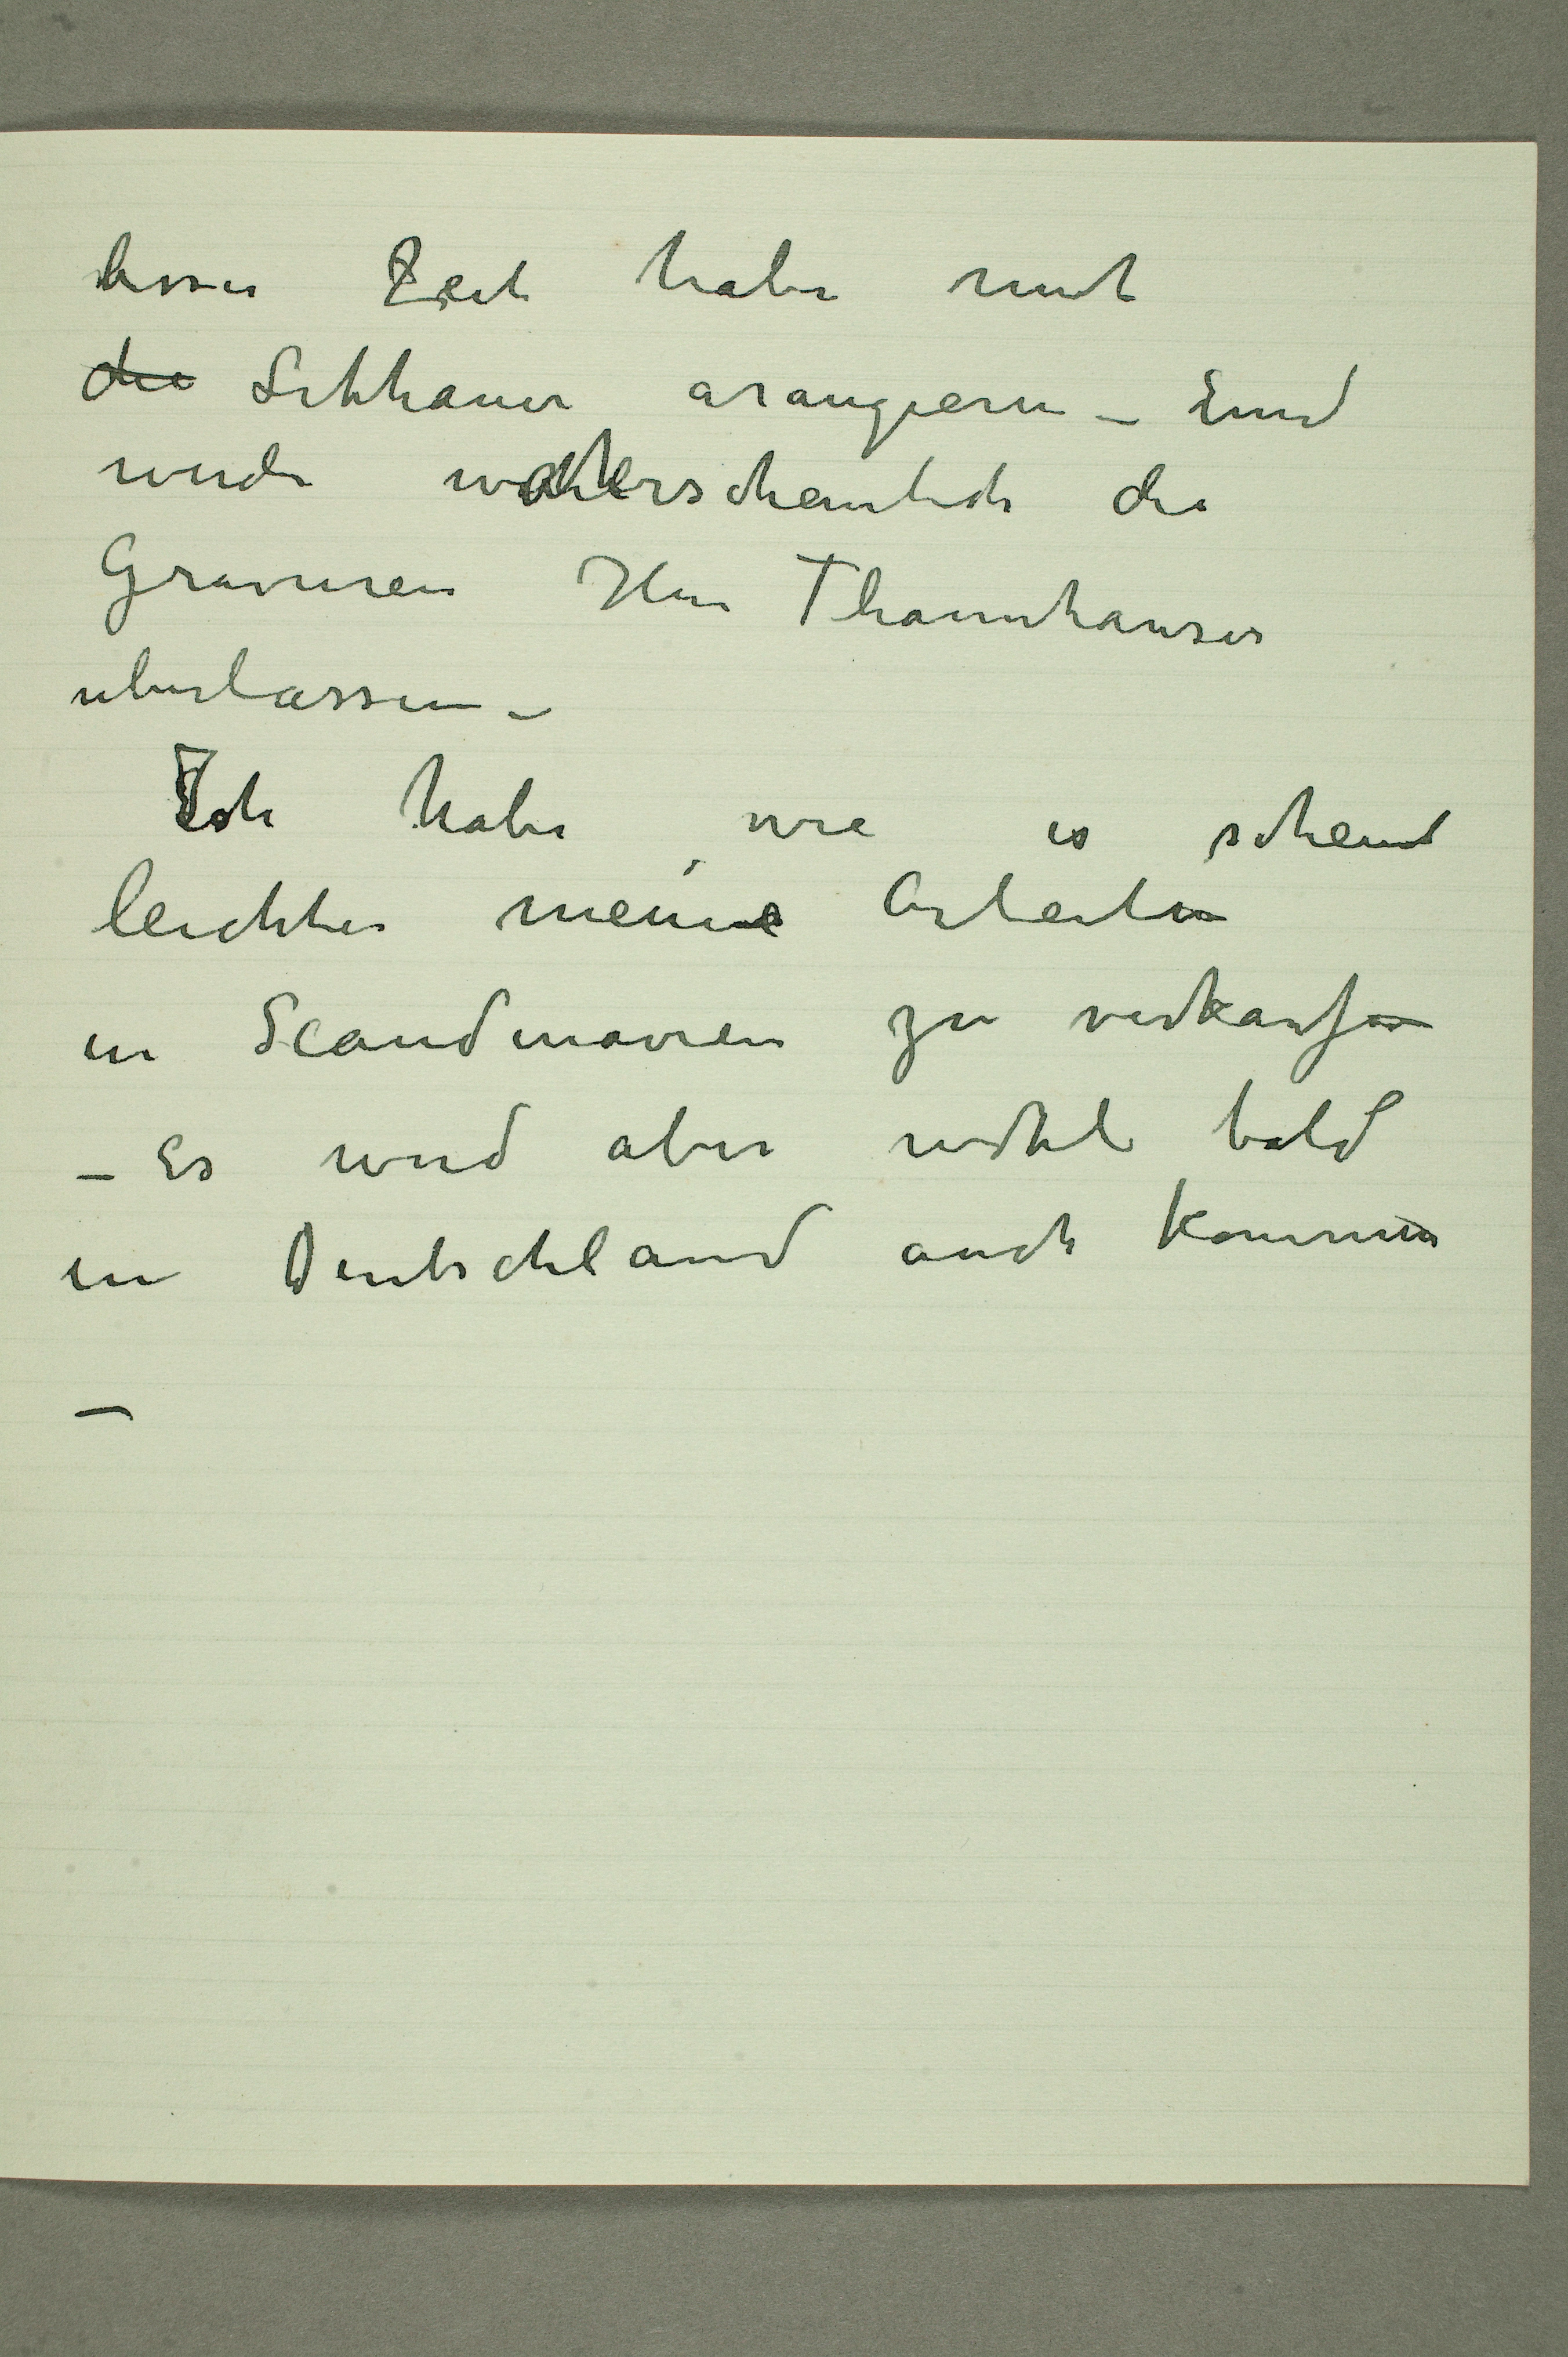 besser Zeit habe mit
die Litthauer arangieren – und
werde waherscheinlich die
Gravuren Herr Thannhauser
uberlassen –
Ich habe, wie es scheint
leichter meine Arbeiten
in Scandinavien zu verkaufen
– Es wird aber wohl bald
in Deutschland auch kommen
–